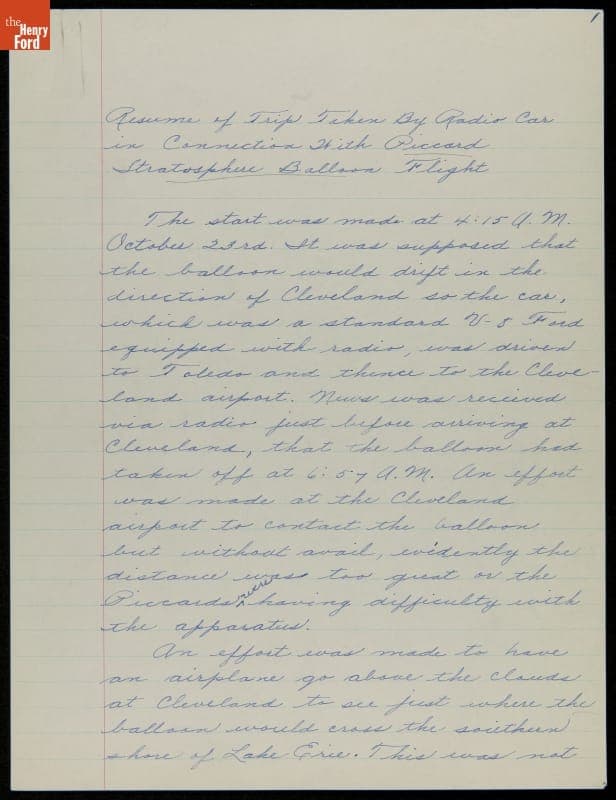 the
Henry
Ford
1
Resume of Trip Taken By Radio Car
in Connection With Piccard
Stratosphere Balloon Flight
The start was made at 4:15 A.M.
October 23rd. It was supposed that
the balloon would drift in the
direction of Cleveland so the car,
which was a standard V-8 Ford
equipped with radio, was driven
to Toledo and thence to the Cleve-
land airport. News was received
via radio just before arriving at
Cleveland, that the balloon had
taken off at 6:57 A.M. An effort
was made at the Cleveland
airport to contact the balloon
but without avail, evidently the
distance was too great or the
Piccards were having difficulty with
the apparatus.
An effort was made to have
an airplane go above the clouds
at Cleveland to see just where the
balloon would cross the southern
shore of Lake Erie. This was not